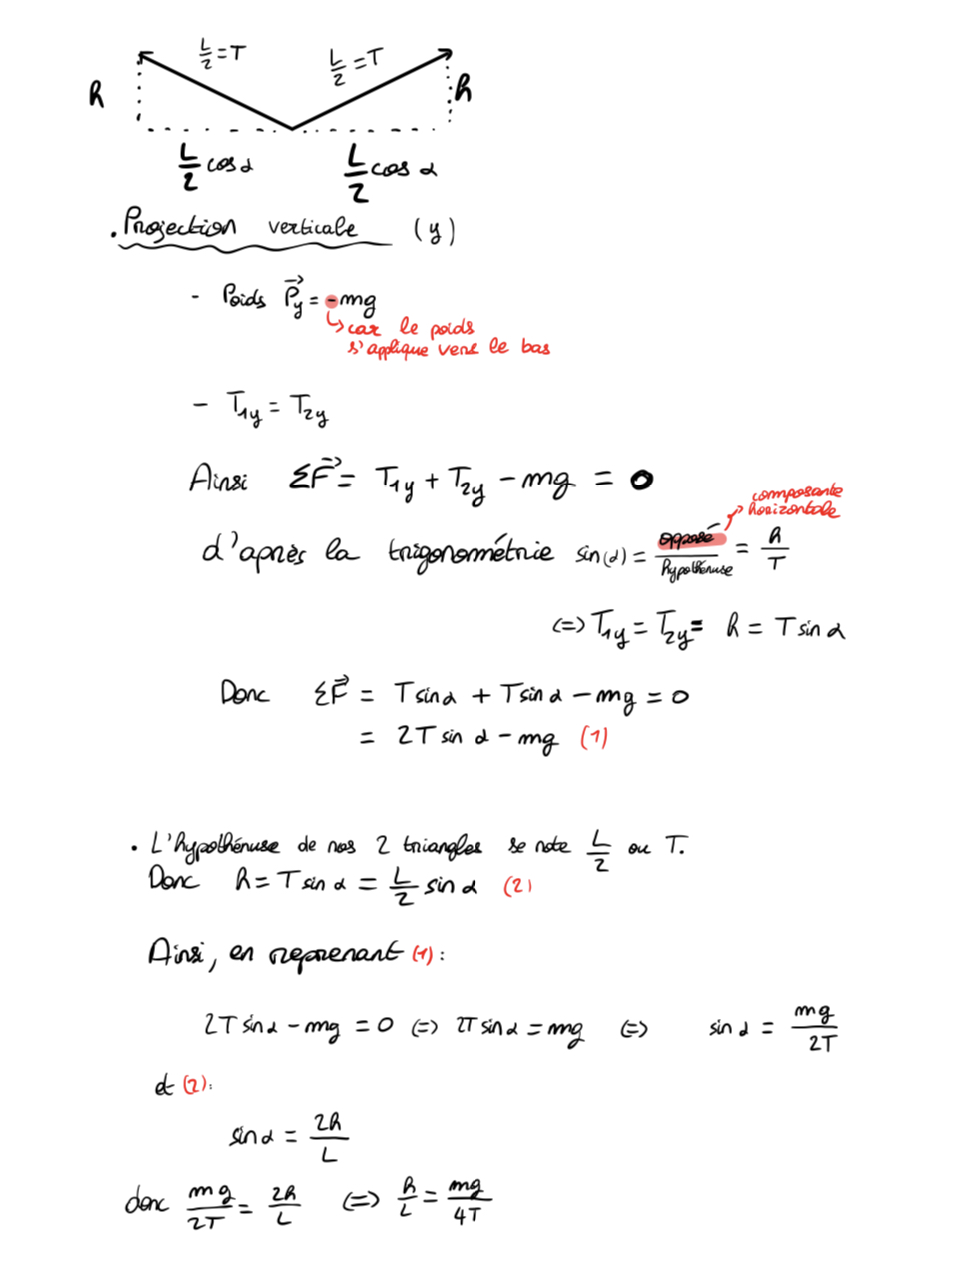 L/2 = T L/2 = T
h h
L/2 cos α L/2 cos α
. Projection verticale (y)
- Poids P⃗y = -mg
↳ car le poids
s'applique vers le bas
- T1y = T2y
Ainsi ΣF⃗ = T1y + T2y - mg = 0
composante
horizontale
d'après la trigonométrie sin(α) = opposé/hypothénuse = h/T
(=) T1y = T2y = h = T sin α
Donc ΣF⃗ = T sin α + T sin α - mg = 0
= 2T sin α - mg (1)
. L'hypothénuse de nos 2 triangles se note L/2 ou T.
Donc h = T sin α = L/2 sin α (2)
Ainsi, en reprenant (1) :
2T sin α - mg = 0 (=) 2T sin α = mg (=) sin α = mg/2T
et (2) :
sin α = 2h/L
donc mg/2T = 2h/L (=) h/L = mg/4T